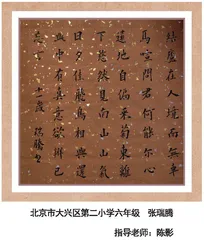 結廬在人境而無車
馬喧問君何能尔心
遠地自偏采菊東籬
下悠然見南山山氣
日夕佳飛鳥相與還
此中有真意欲辨已
忘言 瑞騰書
北京市大兴区第二小学六年级 张瑞腾
指导老师：陈影